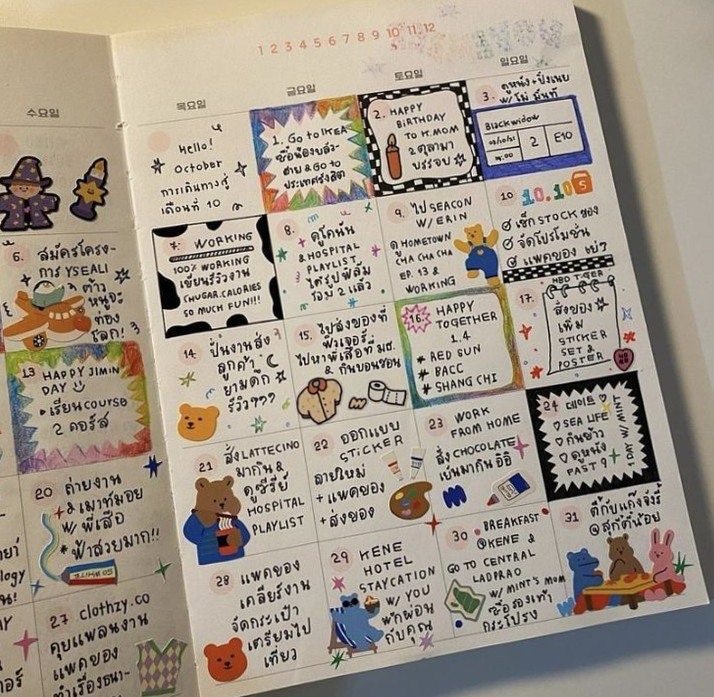 1 2 3 4 5 6 7 8 9 10 11 12
수요일
목요일
금요일
토요일
일요일
Hello!
October
การเดินทางสู่
เดือนที่ 10
1. Go to IKEA
ซื้อน้องบลา-
ฮาย & Go to
ประเทศรังสิต
2. HAPPY
BiRTHDAY
TO K.MOM
2 ตุลามา
บรรจบ
3. ดูหนัง + ปิ้งเนย
w/ โม่ มิ้นท์
Blackwidow
2
E10
6.
สมัครโครง-
การ YSEALI
ท่อง
โลก!
7. WORKING
100% WORKING
เขียนรีวิวงาน
CHUGAR.CALORIES
SO MUCH FUN!!!
8. ดูโคนัน
& HOSPITAL
PLAYLIST
ได้รูปฟิล์ม
โอม 2 แล้ว
9. ไป SEACON
W/ ERIN
ดู HOMETOWN
CHA CHA CHA
EP. 13 &
WORKING
10
10.10
เช็ก STOCK ของ
จัดโปรโมชั่น
แพคของ
13 HAPPY JIMIN
DAY
เรียน course
2 คอร์ส
14
ปั่นงานส่ง
ลูกค้า
ยามดึก
รีวิว???
15. ไปส่งของที่
ฟิวเจอร์
ไปหาพี่เสือที่ มธ.
& กินขอนขอน
16. HAPPY
TOGETHER
1.4
RED SUN
BACC
SHANG CHI
17.
สั่งของ
เพิ่ม
STICKER
SET &
POSTER
20 ถ่ายงาน
& เมาท์มอย
w/ พี่เสือ
ฟ้าสวยมาก!!
21 สั่ง LATTECINO
มากิน &
ดูซีรีย์
HOSPITAL
PLAYLIST
22 ออกแบบ
STICKER
ลายใหม่
+ แพคของ
+ ส่งของ
23 WORK
FROM HOME
สั่ง CHOCOLATE
เย็นมากิน อิอิ
24 데이트 ♡
♡ SEA LIFE
♡ กินข้าว
♡ ดูหนัง
FAST 9
1 DAY W/ MINT
27 clothzy.co
คุยแพลนงาน
แพคของ
ทำเรื่องธนา-
28 แพคของ
เคลียร์งาน
จัดกระเป๋า
เตรียมไป
เที่ยว
29 KENE
HOTEL
STAYCATION
W/ YOU
พักผ่อน
กับคุณ
30 BREAKFAST
@KENE &
GO TO CENTRAL
LADPRAO
w/ MINT'S MOM
ซื้อรองเท้า
กระโปรง
31 ตี้กับแก๊งจังรี้
@สุกี้ตี๋น้อย